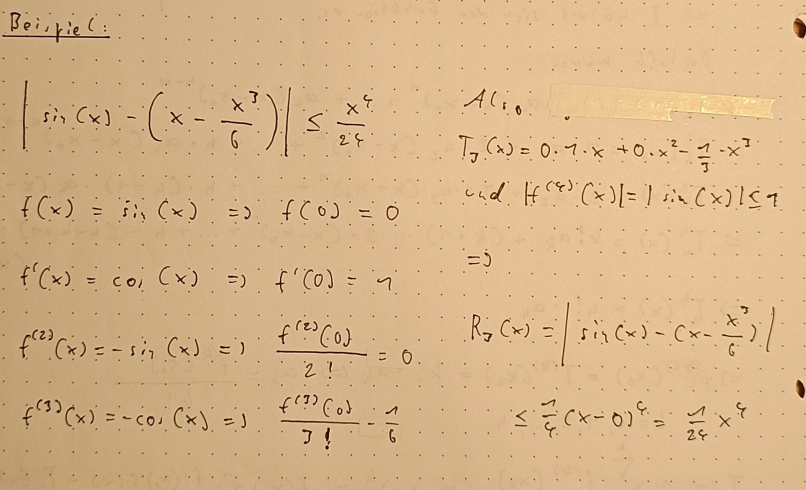 Beispiel:
| sin(x) - (x - x³/6) | ≤ x⁴/24
f(x) = sin(x) => f(0) = 0
f'(x) = cos(x) => f'(0) = 1
f⁽²⁾(x) = -sin(x) => f⁽²⁾(0)/2! = 0
f⁽³⁾(x) = -cos(x) => f⁽³⁾(0)/3! - 1/6
Also
T₃(x) = 0·1·x + 0·x² - 1/3·x³
und |f⁽⁴⁾(x)| = |sin(x)| ≤ 1
=>
R₃(x) = | sin(x) - (x - x³/6) |
≤ 1/4 (x-0)⁴ = 1/24 x⁴